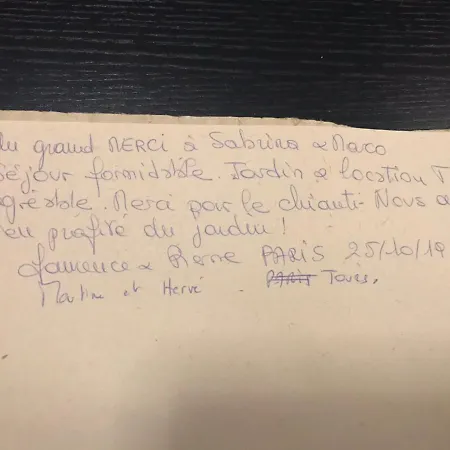 Un grand MERCI à Sabrina & Marco
Séjour formidable. Jardin & location T
agréable. Merci pour le chianti. Nous a
eu profité du jardin !
Laurence & Pierre PARIS 25/10/19
Martine et Hervé - PARIS Tours.